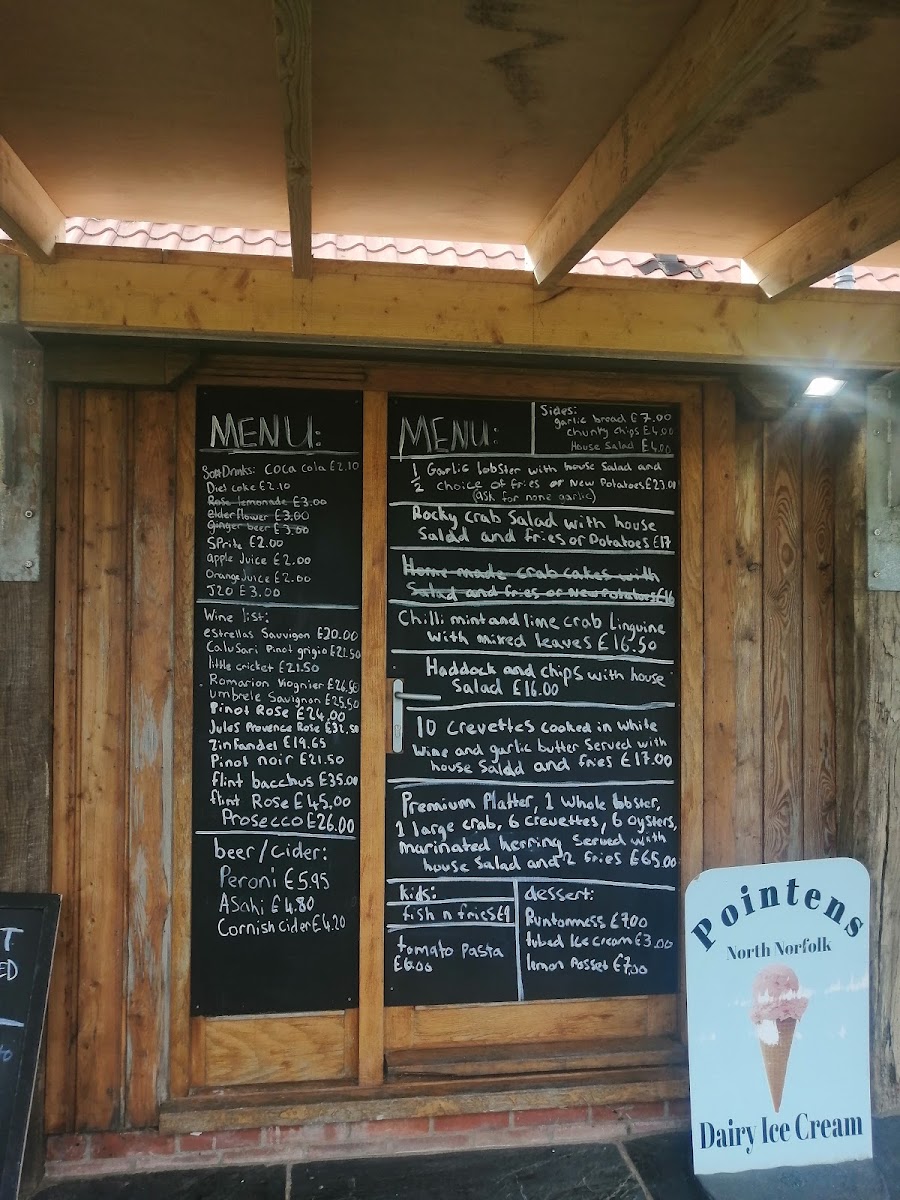 MENU:
Soft Drinks: Coca cola £2.10
Diet coke £2.10
Rose lemonade £3.00
elderflower £3.00
Ginger beer £3.00
Sprite £2.00
apple Juice £2.00
Orange Juice £2.00
J20 £3.00
Wine list:
estrellas Sauvigon £20.00
Calusari Pinot grigio £21.50
little cricket £21.50
Romarion Viognier £26.50
umbrele Sauvignon £25.50
Pinot Rose £24.00
Jules Provence Rose £32.50
Zinfandel £19.65
Pinot noir £21.50
flint bacchus £35.00
flint Rose £45.00
Prosecco £26.00
beer/cider:
Peroni £5.95
Asahi £4.80
Cornish Cider £4.20
MENU:
Sides:
garlic bread £7.00
chunky chips £4.00
House Salad £4.00
1/2 Garlic lobster with house Salad and
choice of fries or New Potatoes £23.00
(ask for none garlic)
Rocky crab Salad with house
Salad and fries or Potatoes £17
Home made crab cakes with
Salad and fries or New Potatoes £16
Chilli mint and lime crab Linguine
with mixed leaves £16.50
Haddock and chips with house
Salad £16.00
10 crevettes cooked in white
wine and garlic butter Served with
house Salad and fries £17.00
Premium Platter, 1 whole lobster,
1 large crab, 6 crevettes, 6 oysters,
marinated herring Served with
house Salad and 2 fries £65.00
kids:
fish n fries £9
tomato Pasta
£6.00
dessert:
Runtonmess £7.00
tubed Ice cream £3.00
lemon Posset £7.00
T
ED
to
Pointens
North Norfolk
Dairy Ice Cream